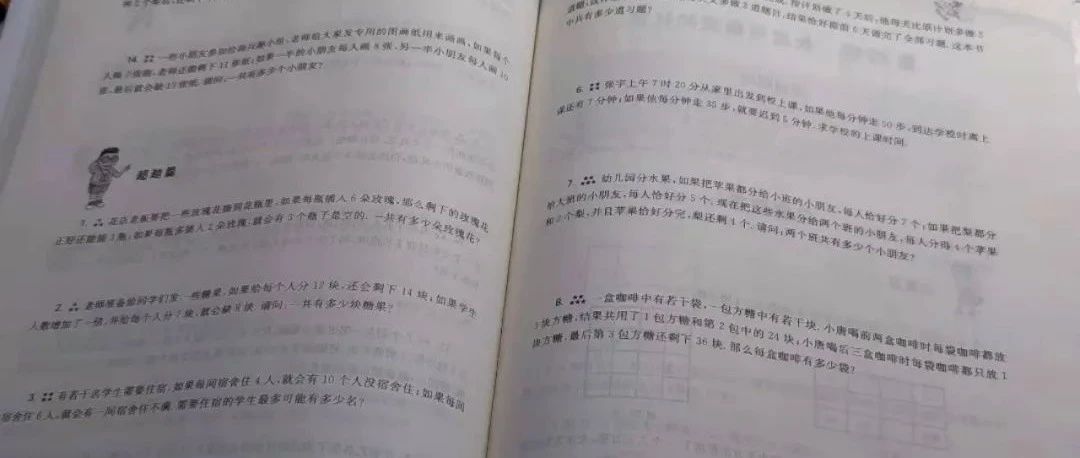 14. 一些小朋友参加绘画兴趣小组,老师给大家发专用的图画纸用来画画,如果每个
人画7张画,老师还能剩下11张纸;如果一半的小朋友每人画8张,另一半小朋友每人画10
张,最后就会缺13张纸.请问:一共有多少个小朋友?
超越篇
1. 花店老板要把一些玫瑰花插到花瓶里.如果每瓶插入6朵玫瑰,那么剩下的玫瑰花
正好还能插3瓶;如果每瓶多插入2朵玫瑰,就会有3个瓶子是空的.一共有多少朵玫瑰花?
2. 老师准备给同学们发一些糖果.如果给每个人分12块,还会剩下14块;如果学生
人数增加了一倍,并给每个人分7块,就会缺8块.请问:一共有多少块糖果?
3. 有若干名学生需要住宿.如果每间宿舍住4人,就会有10个人没宿舍住;如果每间
宿舍住6人,就会有一间宿舍住不满.需要住宿的学生最多可能有多少名?
中共有多少道习题?
6. 张宇上午7时20分从家里出发到校上课,如果他每分钟走50步,到达学校时离上
课还有7分钟;如果他每分钟走35步,就要迟到5分钟.求学校的上课时间.
7. 幼儿园分水果,如果把苹果都分给小班的小朋友,每人恰好分7个;如果把梨都分
给大班的小朋友,每人恰好分5个.现在把这些水果分给两个班的小朋友,每人分得4个苹果
和2个梨,并且苹果恰好分完,梨还剩4个.请问:两个班共有多少个小朋友?
8. 一盒咖啡中有若干袋,一包方糖中有若干块.小唐喝前两盒咖啡时每袋咖啡都放
3块方糖,结果共用了1包方糖和第2包中的24块;小唐喝后三盒咖啡时每袋咖啡都只放1
块方糖,最后第3包方糖还剩下36块.那么每盒咖啡有多少袋?